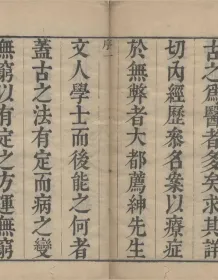 古之爲醫者多矣求其詳
切內經歷參名案以療症
於無弊者大都薦紳先生
序一
文人學士而後能之何者
蓋古之法有定而病之變
無窮以有定之方運無窮